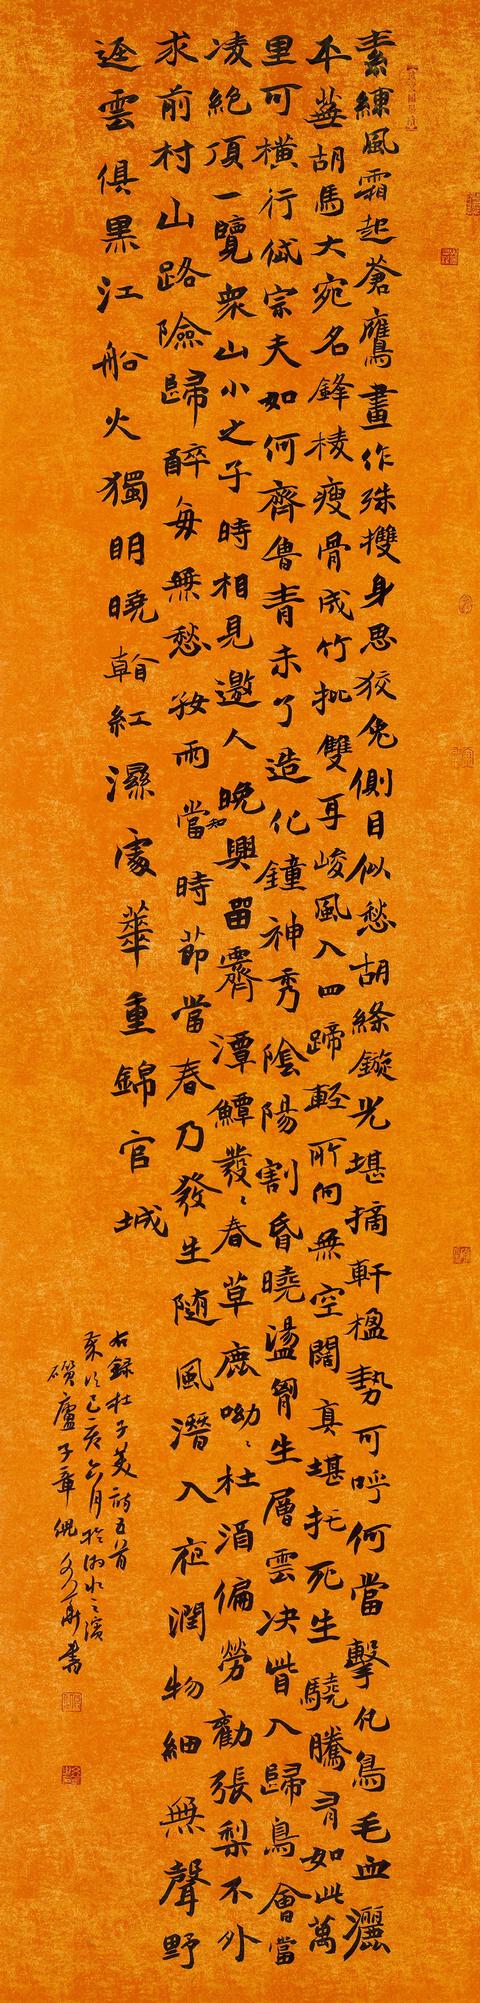 素練風霜起蒼鷹畫作殊㩳身思狡兔側目似愁胡絛鏇光堪摘軒楹勢可呼何當擊凡鳥毛血灑
平蕪胡馬大宛名鋒棱瘦骨成竹批雙耳峻風入四蹄輕所向無空闊真堪托死生驍騰有如此萬
里可橫行岱宗夫如何齊魯青未了造化鐘神秀陰陽割昏曉盪胷生層雲決眥入歸鳥會當
凌絕頂一覽衆山小之子時相見邀人晚興留霽潭鱣發〻春草鹿呦〻杜酒偏勞勸張梨不外
求前村山路險歸醉每無愁好雨當知時節當春乃發生随風潛入夜潤物細無聲野
逕雲俱黑江船火獨明曉看紅濕處華重錦官城
右録杜子美詩五首
次己亥六月於湘水之濱
廬子章倪書